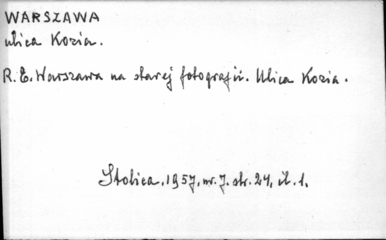 WARSZAWA
ulica Kozia.
R. E. Warszawa na starej fotografii. Ulica Kozia.
Stolica. 1957. nr. 7. str. 24, il. 1.